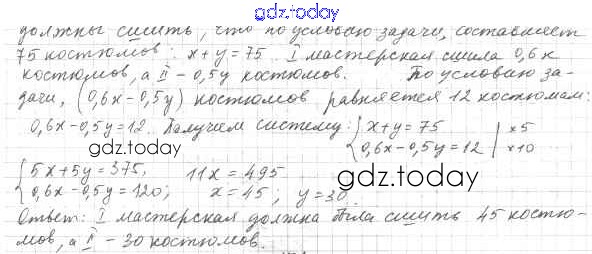 gdz.today
должны сшить, что по условию задачи, составляет
75 костюмов: x+y=75. I мастерская сшила 0,6x
костюмов, а II – 0,5y костюмов. По условию за-
дачи, (0,6x-0,5y) костюмов равняется 12 костюмам:
0,6x-0,5y=12. Получаем систему: { x+y=75 | x5
gdz.today
0,6x-0,5y=12 | x10
{ 5x+5y=375, 11x=495
gdz.today
0,6x-0,5y=120; x=45; y=30.
Ответ: I мастерская должна была сшить 45 костю-
мов, а II – 30 костюмов.
gdz.today